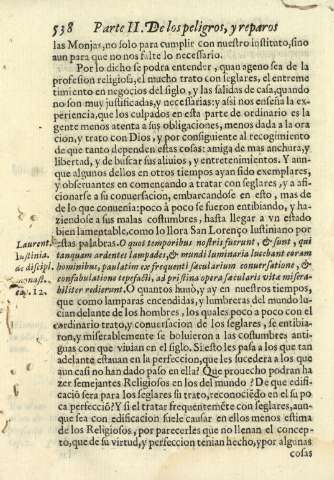 538 Parte II. De los peligros, y reparos
las Monjas, no solo para cumplir con nuestro instituto, sino
aun para que no nos falte lo necessario.
Por lo dicho se podra entender, quan ageno sea de la
profesion religiosa, el mucho trato con seglares, el entreme
timiento en negocios del siglo, y las salidas de casa, quando
no son muy justificadas, y necessarias: y asi nos enseña la ex
periencia, que los culpados en esta parte de ordinario es la
gente menos atenta a sus obligaciones, menos dada a la ora
cion, y trato con Dios, y por consiguiente al recogimiento
de que tanto dependen estas cosas: amiga de mas anchura, y
libertad, y de buscar sus aliuios, y entretenimientos. Y aun-
que algunos dellos en otros tiempos ayan sido exemplares,
y obseruantes en comencando a tratar con seglares, y a afi
cionarse a su conuersacion, embarcandose en esto, mas de
de lo que conuenia: poco à poco se fueron entibiando, y ha-
ziendose a sus malas costumbres, hasta llegar a vn estado
bien lamentable, como lo llora San Lorenço Iustiniano por
estas palabras. O quot temporibus nostris fuerunt, & sunt, qui
tanquam ardentes lampades, & mundi luminaria lucebant coram
hominibus, paulatim ex frequenti sæcularium conuersatione, &
confabulatione tepefacti, ad pristina opera sæcularis vitæ misera-
biliter redierunt. O quantos huuo, y ay en nuestros tiempos,
que como lamparas encendidas, y lumbreras del mundo lu-
cian delante de los hombres, los quales poco a poco con el
ordinario trato, y conuersacion de los seglares, se entibia-
ron, y miserablemente se boluieron a las costumbres anti-
guas con que viuian en el siglo. Si esto les pasa a los que tan
adelante estauan en la perfeccion, que les sucedera a los que
aun casi no han dado paso en ella? Que prouecho podran ha
zer semejantes Religiosos en los del mundo? De que edifi-
cació sera para los seglares su trato, reconociēdo en el su po
ca perfecció? Y si el tratar frequentemēte con seglares, aun-
que sea con edificacion suele causar en ellos menos estima
de los Religiosos, por parecerles que no llenan el concep-
to, que de su virtud, y perfeccion tenian hecho, y por algunas
cosas
Laurent.
Iustinia.
de discipl.
monast.
cap. 12.